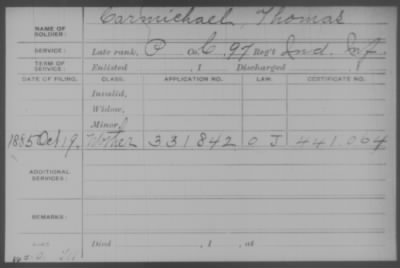 NAME OF SOLDIER: Carmichael, Thomas
SERVICE: Late rank, P Co. C, 97 Reg't Ind. Inf.
TERM OF SERVICE: Enlisted , 1 Discharged , 1
DATE OF FILING. CLASS. APPLICATION NO. LAW. CERTIFICATE NO.
Invalid,
Widow,
Minor,
1885 Oct 19, Mother 331842 O J 441.064
ADDITIONAL SERVICES:
REMARKS:
Died , 1 , at